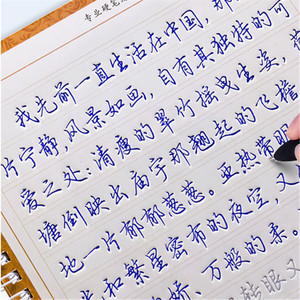 专业硬笔
我先前一直生活在中国,那
片宁静,风景如画,自有其独特的可
爱之处:清瘦的翠竹摇曳生姿,
塘倒映出庙宇那翘起的飞檐
地一片郁郁葱葱。亚热带明
和繁星密布的夜空,又
娇、万般的柔。
转眼又